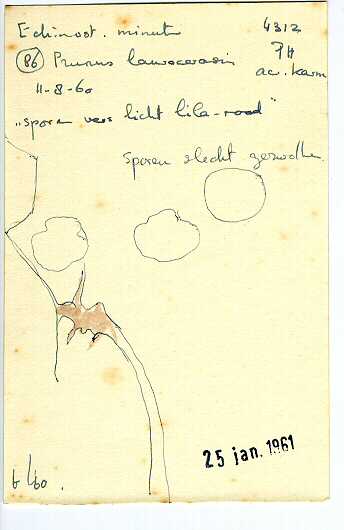 Echinost. minut 4312
(86) Prunus laurocerasin PH
11-8-60 ac. karm
"sporen vers licht lila-rood"
sporen slecht gezwollen
25 jan. 1961
6/60.